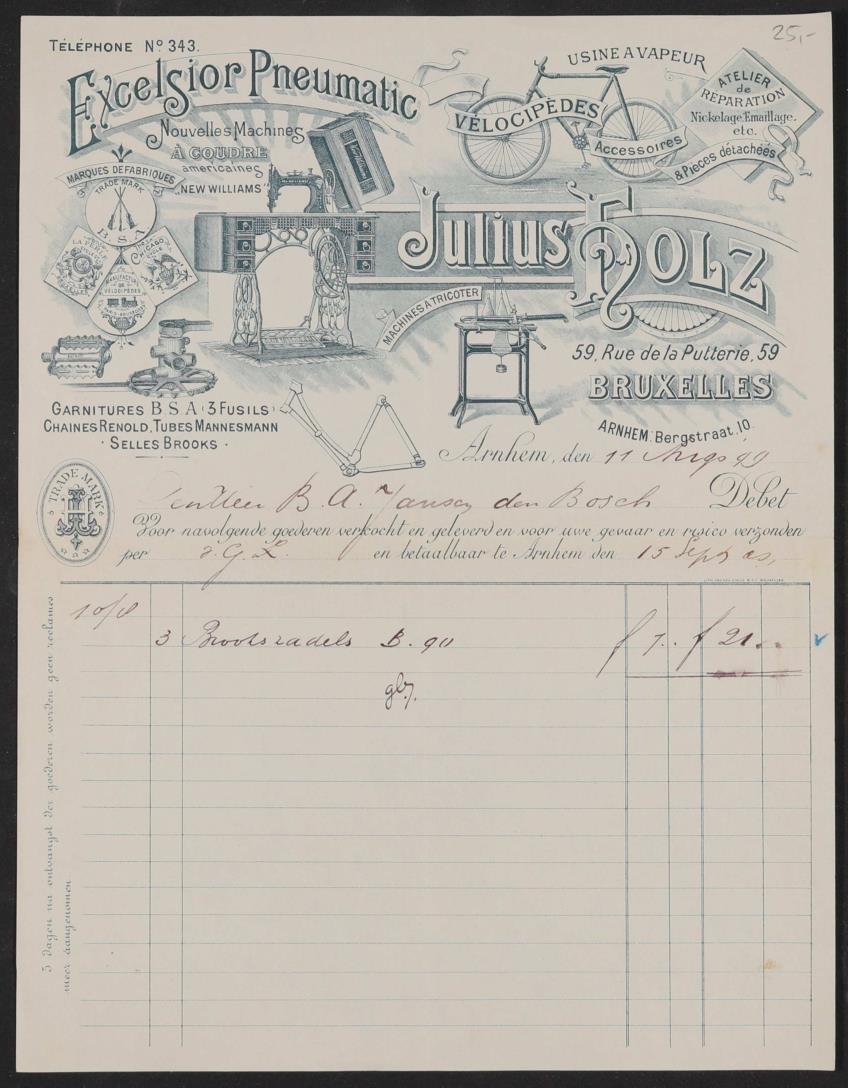 25,-
TÉLÉPHONE Nº 343.
Excelsior Pneumatic
Nouvelles Machines
À COUDRE
américaines
"NEW WILLIAMS"
USINE A VAPEUR
VÉLOCIPÈDES
Accessoires
& Pièces détachées
ATELIER
de
RÉPARATION
Nickelage, Emaillage.
etc.
MARQUES DE FABRIQUES
TRADE MARK
B.S.A
LA PERLE
CHICAGO
MANUFACTURE
DE
VÉLOCIPÈDES
Julius Holz
MACHINES A TRICOTER
59, Rue de la Putterie, 59
BRUXELLES
ARNHEM: Bergstraat, 10.
GARNITURES B S A (3 FUSILS)
CHAINES RENOLD, TUBES MANNESMANN
· SELLES BROOKS ·
TRADE MARK
Arnhem, den 11 Aug 99
Den Heer B. A. Jansen den Bosch Debet
Voor navolgende goederen verkocht en geleverd en voor uwe gevaar en risico verzonden
per en betaalbaar te Arnhem den 15 Sept
10/8
3 Brookszadels B. 90 f 7.. f 21...
5 dagen na ontvangst der goederen worden geen reclames
meer aangenomen